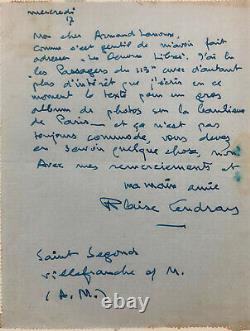 mercredi
17
Mon cher Armand Lanoux,
comme c'est gentil de m'avoir fait
adresser "Les Oeuvres Libres". J'ai lu
les Passages du 113e avec d'autant
plus d'intérêt que j'écris en ce
moment le texte pour un gros
album de photos sur la banlieue
de Paris — et ça n'est pas
toujours commode, vous devez
en savoir quelque chose, non?
Avec mes remerciements et
ma main amie
Blaise Cendrars
Saint Segond
Villefranche s/ M.
(A. M.)